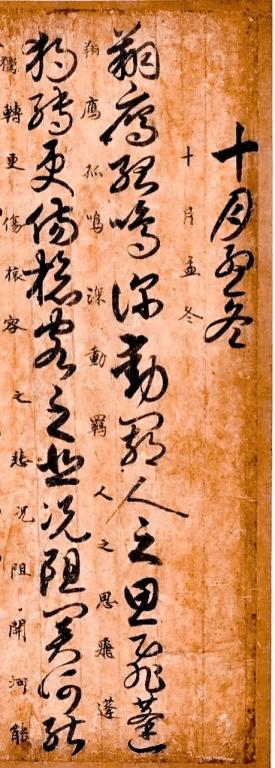 十月孟冬
十月孟冬
翔鷹孤鳴深動羈人之思飛蓬
翔鷹孤鳴深動羈人之思飛蓬
獨轉更傷懷客之悲況阻關河能
獨轉更傷懷容之悲況阻開河能